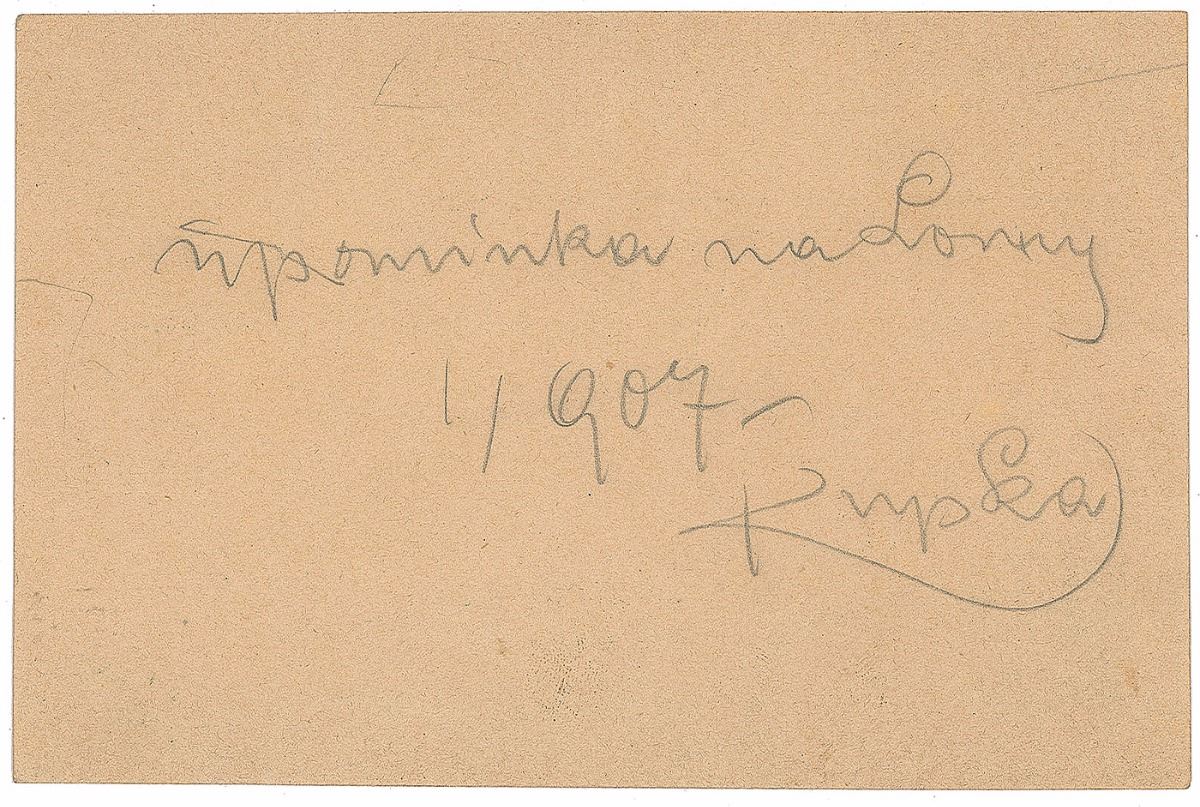 upomínka na Louny
1/907-
Kupka